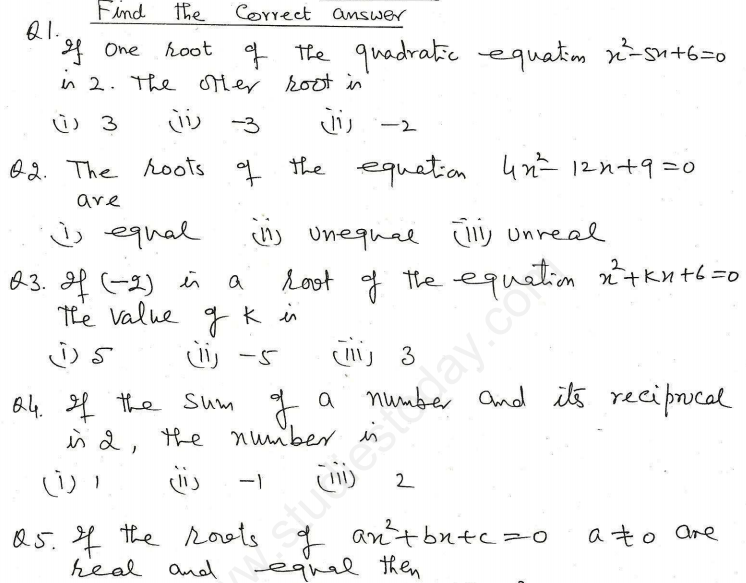 Find the Correct answer
Q1. If one root of the quadratic equation x²-5x+6=0
is 2. The other root is
(i) 3 (ii) -3 (ii) -2
Q2. The roots of the equation 4x²-12x+9=0
are
(i) equal (ii) unequal (iii) unreal
Q3. If (-2) is a root of the equation x²+Kx+6=0
The value of K is
(i) 5 (ii) -5 (iii) 3
Q4. If the sum of a number and its reciprocal
is 2, the number is
(i) 1 (ii) -1 (iii) 2
Q5. If the roots of ax²+bx+c=0 a≠0 are
real and equal then
www.studiestoday.com